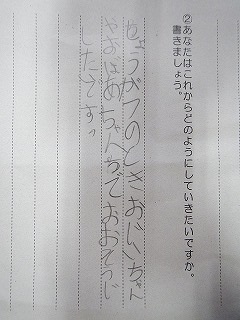 ②あなたはこれからどのようにしていきたいですか。
書きましょう。
しょうがつのときおじいちゃん
やおばあちゃんちでおおそうじ
したいです。